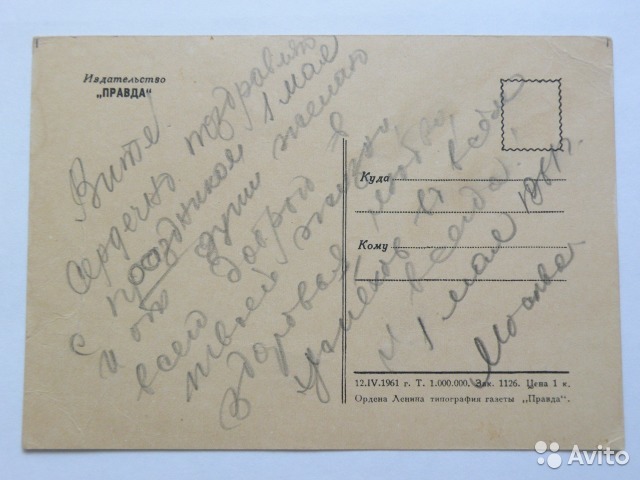 Издательство
„ПРАВДА“
Витя!
Сердечно поздравляю
с праздником 1 мая
и от души желаю
всего доброго в
твоей жизни,
здоровья,
успехов во всём
и всегда!
1 мая 1961 г.
Москва.
Куда
Кому
12.IV.1961 г. Т. 1.000.000. Зак. 1126. Цена 1 к.
Ордена Ленина типография газеты „Правда“.
Avito